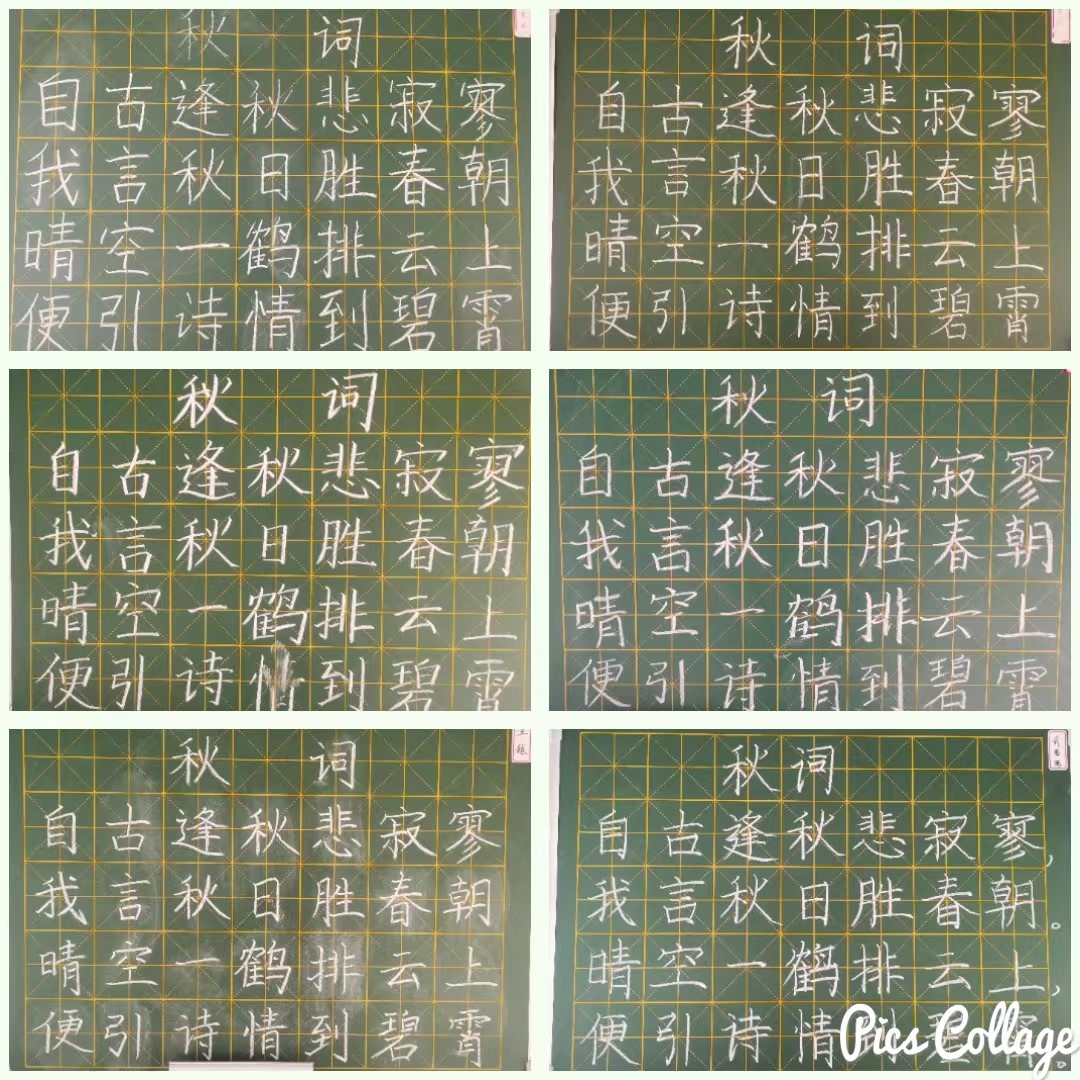 秋词
自古逢秋悲寂寥
我言秋日胜春朝
晴空一鹤排云上
便引诗情到碧霄
秋词
自古逢秋悲寂寥
我言秋日胜春朝
晴空一鹤排云上
便引诗情到碧霄
秋词
自古逢秋悲寂寥
我言秋日胜春朝
晴空一鹤排云上
便引诗情到碧霄
秋词
自古逢秋悲寂寥
我言秋日胜春朝
晴空一鹤排云上
便引诗情到碧霄
秋词
自古逢秋悲寂寥
我言秋日胜春朝
晴空一鹤排云上
便引诗情到碧霄
秋词
自古逢秋悲寂寥，
我言秋日胜春朝。
晴空一鹤排云上，
便引诗情
Pics Collage